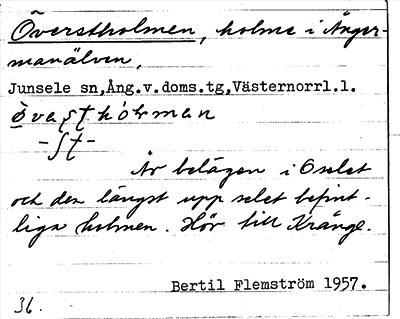 Överstholmen, holme i Ånger-
manälven,
Junsele sn,Ång.v.doms.tg,Västernorrl.l.
Är belägen i Oselet
och den längst upp selet befint-
liga holmen. Hör till Krånge.
Bertil Flemström 1957.
36.